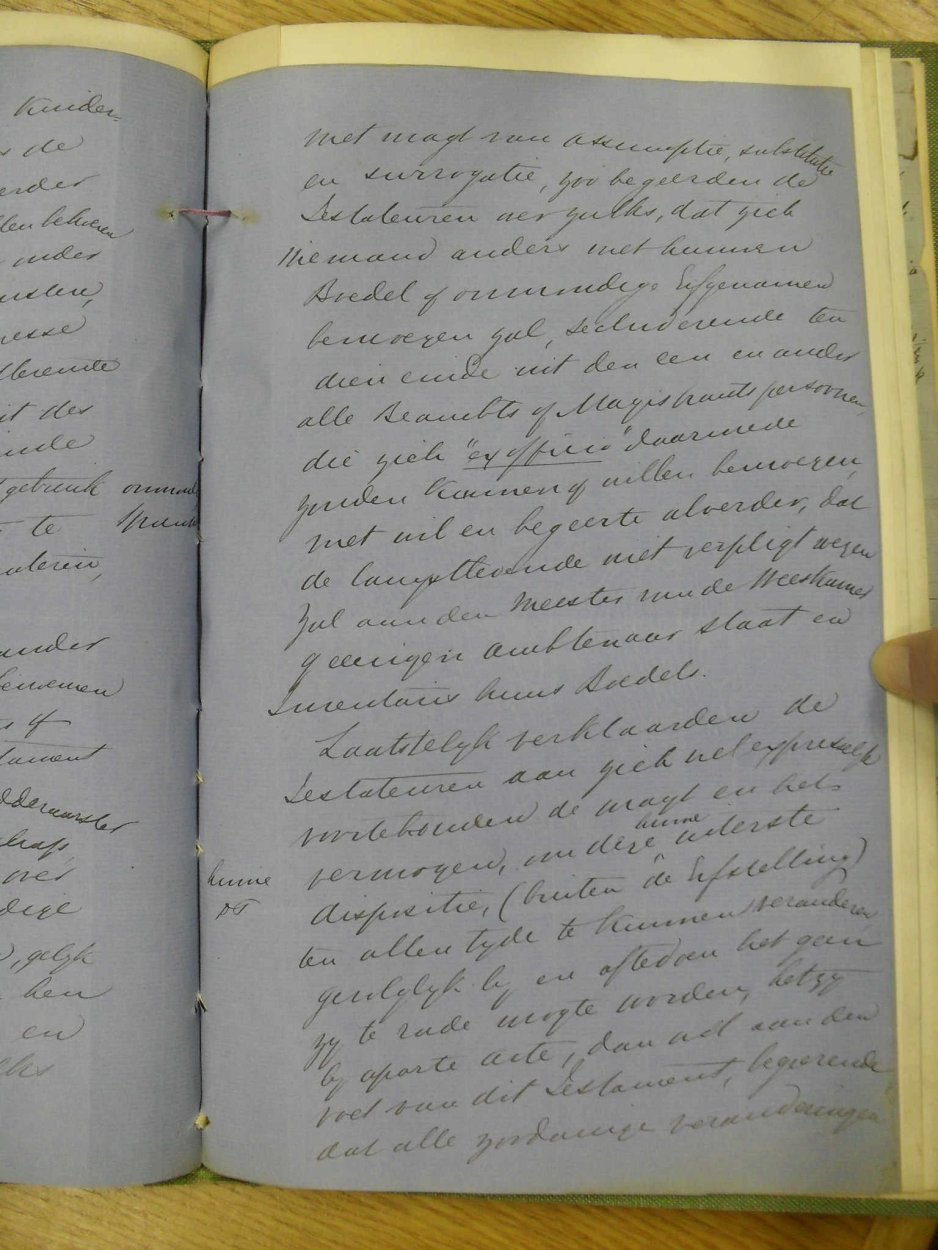 Kinder-
de
erder
len behoeven
onder
nesse
it des
einde
gebruik onmond
te
ander
benoemen
of
tament
over
dige
, gelyk
hen
en
met magt van assumptie, substitutie
en surrogatie, zoo begeerden de
Testateuren nergulks, dat zich
Niemand anders met hunnen
Boedel of onmondige Erfgenamen
bemoegen zal, secluderende ten
dien einde uit den een en ander
alle Beambts of Magistraatspersoonen,
die zich "ex officio" daarmede
zouden kunnen of willen bemoegen,
met wil en begeerte alverder, dat
de langstlevende niet verpligt wezen
Zal aan den Meester van de Weeskamer
of eenigen ambtenaar staat en
Inventaris huns Boedels.
Laatstelyk verklaarden de
Testateuren aan zich wel expresselyk
voortehouden de magt en het
vermogen, om deze hunne uiterste
hunne
dispositie, (buiten de Erfstelling)
ten allen tyde te kunnen veranderen,
gevolglyk by en aftedoen het geen
zy te rade mogte worden, hetzy
by aparte acte, dan wel aan den
voet van dit Testament, begeerende
dat alle zoodanige veranderingen